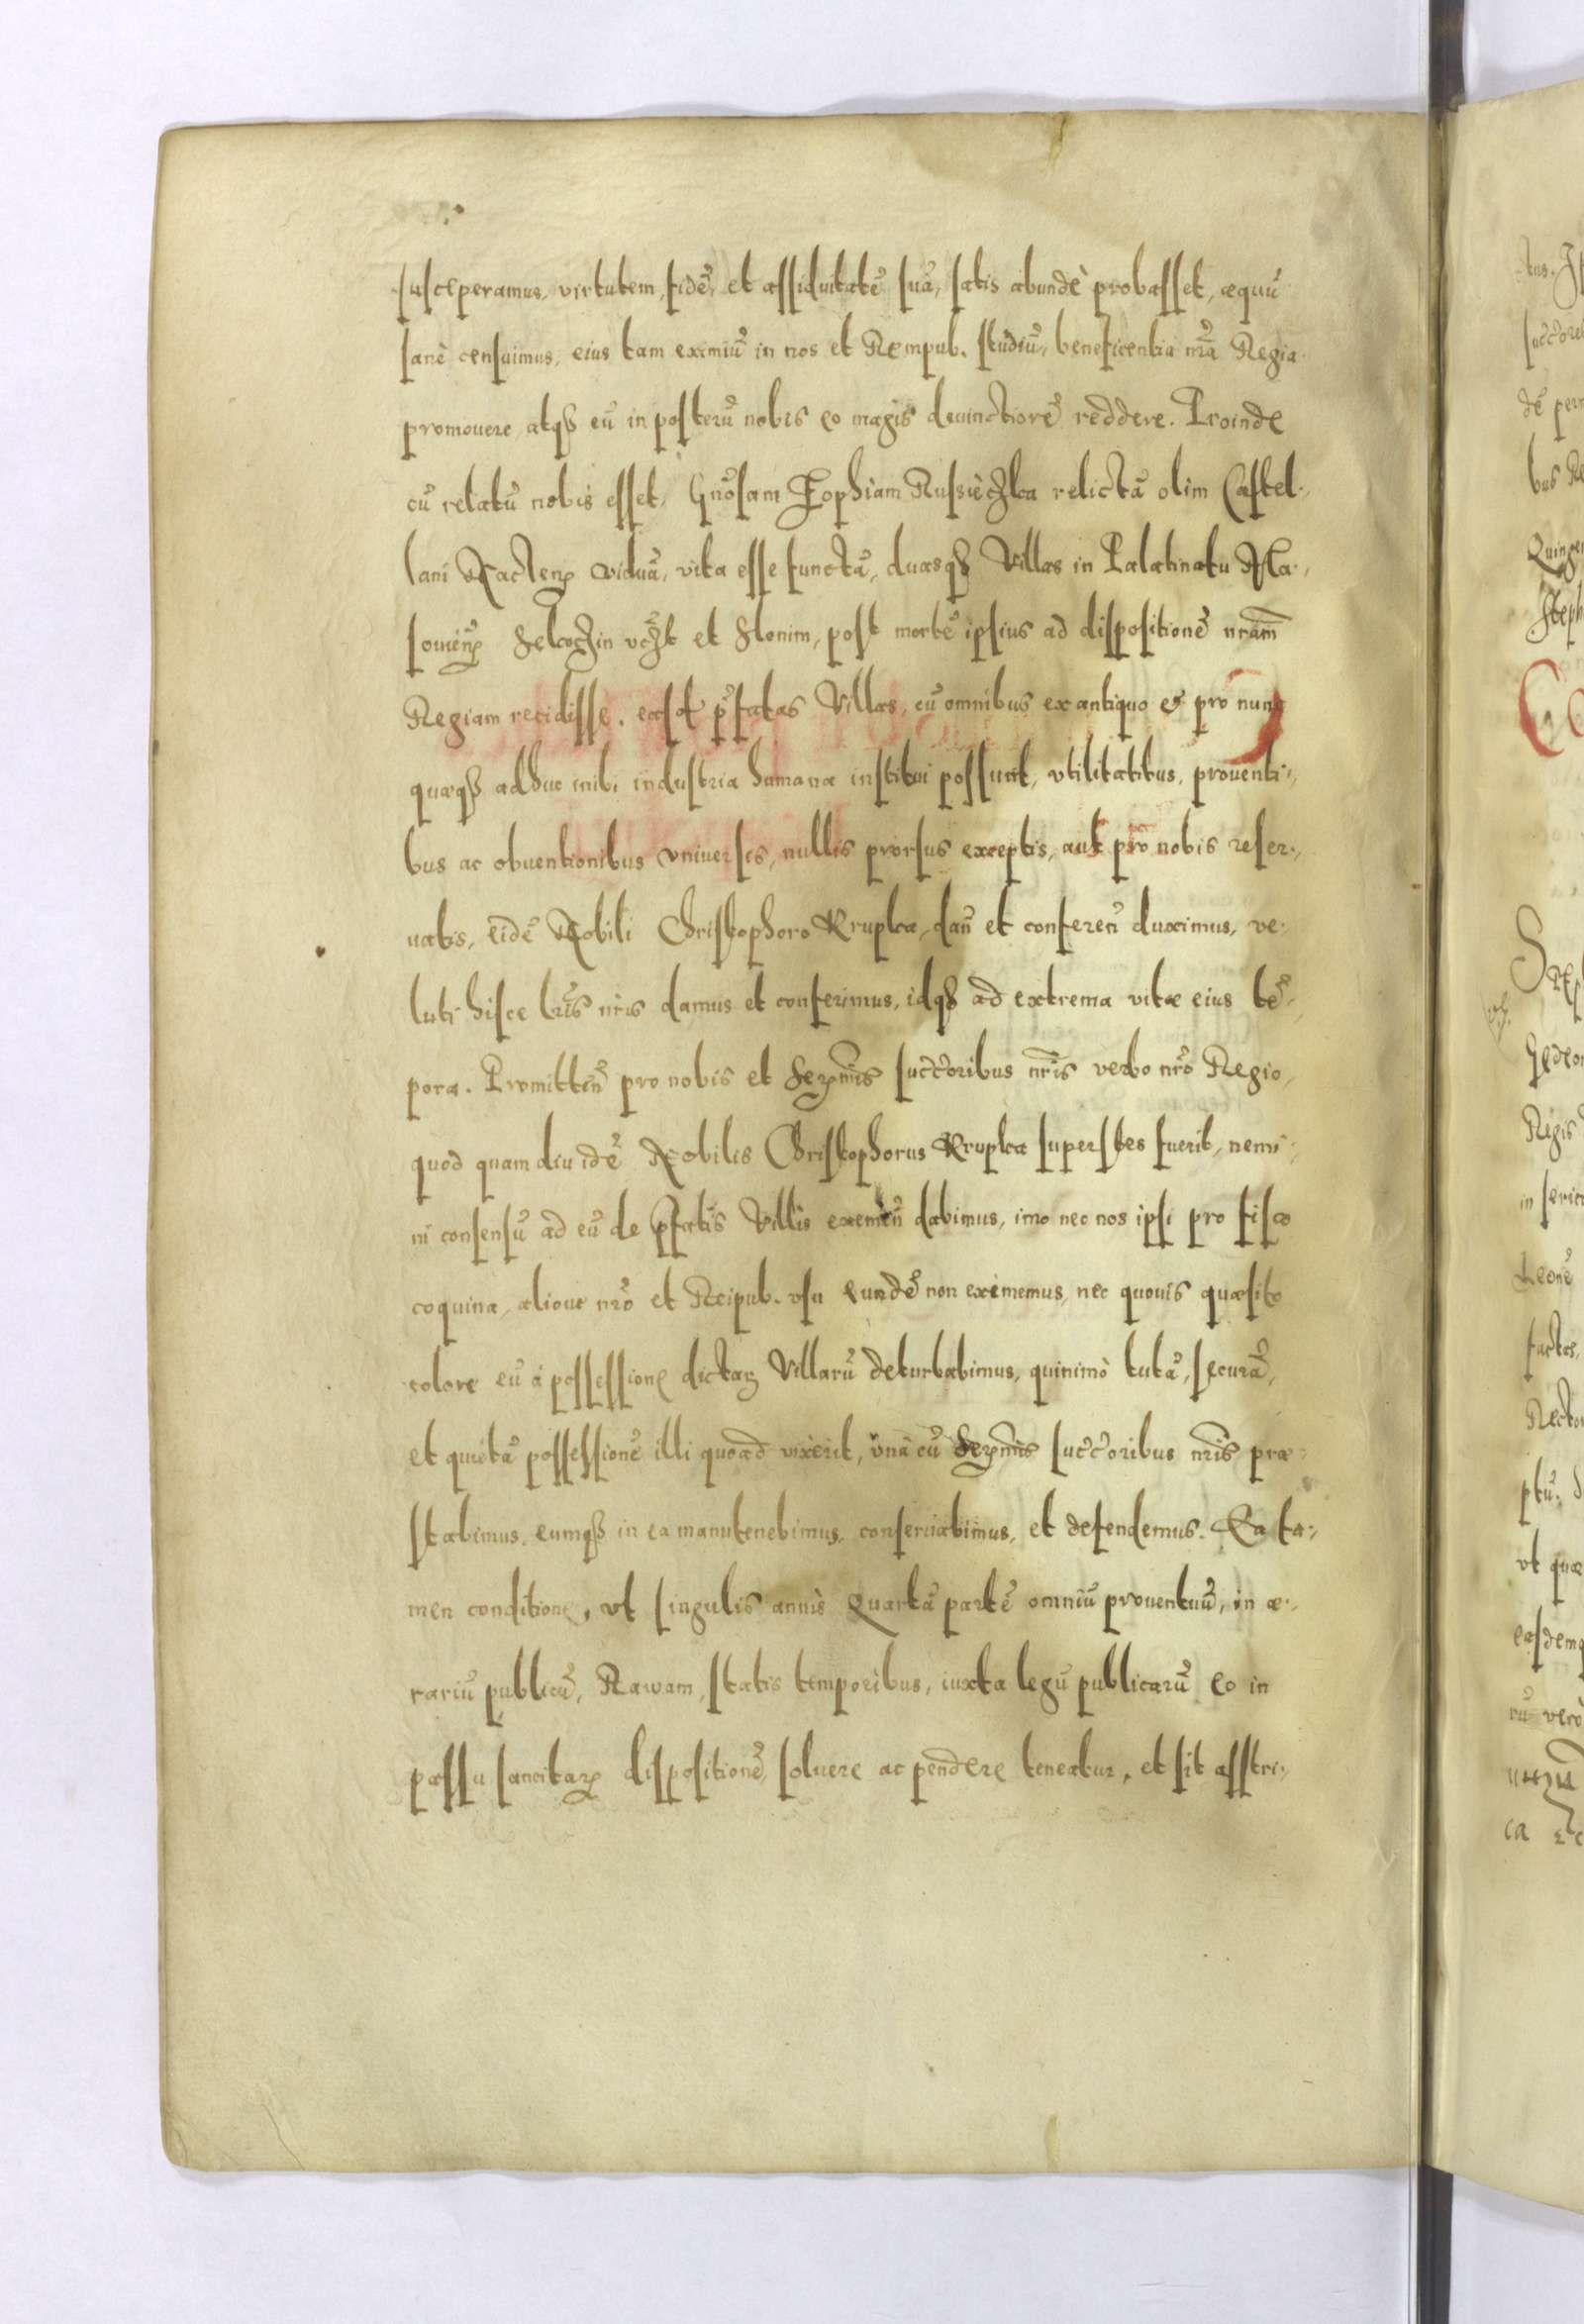 susceperamus, virtutem, fidē, et assiduitatē suā, satis abundè probasset, æquū
sanè censuimus, eius tam eximiū in nos et Rempub. studiū, beneficentia nrā Regia
promouere, atqꝫ eū in posterū nobis eo magis deuinctiorē reddere. Proinde
cū relatū nobis esset, Gnōsam Zophiam relictā olim Castel-
lani viduā, vita esse functā, duasqꝫ Villas in Palatinatu Ma-
souieñ et Slonim, post mortē ipsius ad dispositionē nram̄
Regiam recidisse. easdē p̄fatas Villas, cū omnibus ex antiquo et pro nunc
quæqꝫ adhuc inibi industria humana institui possunt, vtilitatibus, prouenti-
bus ac obuentionibus vniuersis, nullis prorsus exceptis, aut pro nobis reser-
uatis, eidē Nobili Christophoro Krupka, dañ et confereñ duximus, ve-
luti hisce lrīs nrīs damus et conferimus, idqꝫ ad extrema vitæ eius tē-
pora. Promitteñ pro nobis et Serm̄is succ̄oribus nrīs verbo nrō Regio,
quod quam diu idē Nobilis Christophorus Krupka superstes fuerit, nemi-
ni consensū ad eū de p̄fatis Villis eximeñ dabimus, imo nec nos ipsi pro fisco
coquina, alioue nrō et Reipub. vsu eundē non eximemus, nec quouis quæsito
colore eū à possessione dictaꝝ Villarū deturbabimus, quinimò tutā, securā,
et quietā possessionē illi quoad vixerit, vnà cū Serm̄is succ̄oribus nrīs præ-
stabimus, eumqꝫ in ea manutenebimus, conseruabimus, et defendemus. Ea ta-
men conditione, vt singulis annis Quartā partē omniū prouentuū, in æ-
rariū publicū, Rawam, statis temporibus, iuxta legū publicarū eo in
passu sancitaꝝ dispositionē, soluere ac pendere teneatur, et sit asstri-